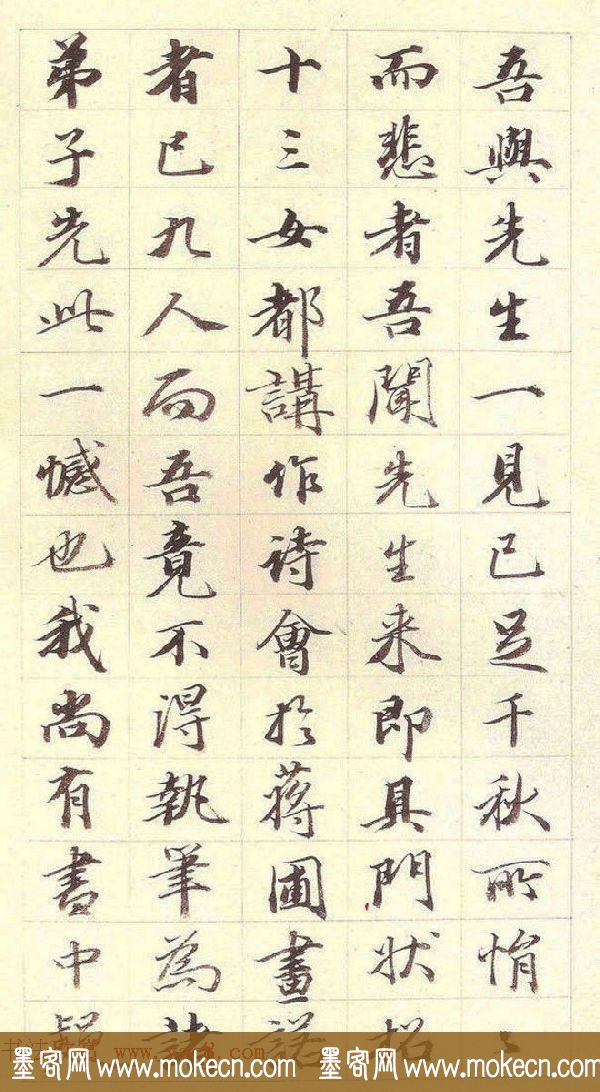 吾與先生一見已足千秋所悁
而悲者吾聞先生來即具門狀招
十三女都講作诗會於蔣圃畫諾
者已九人而吾竟不得執筆為諸
弟子先此一憾也我尚有書中疑
墨客网www.mokecn.com 墨客网www.mokecn.com